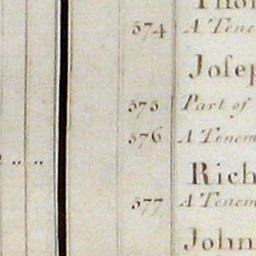 574 A Tene
Josep
575 Part of
576 A Tenem
Rich
577 A Tenem
John